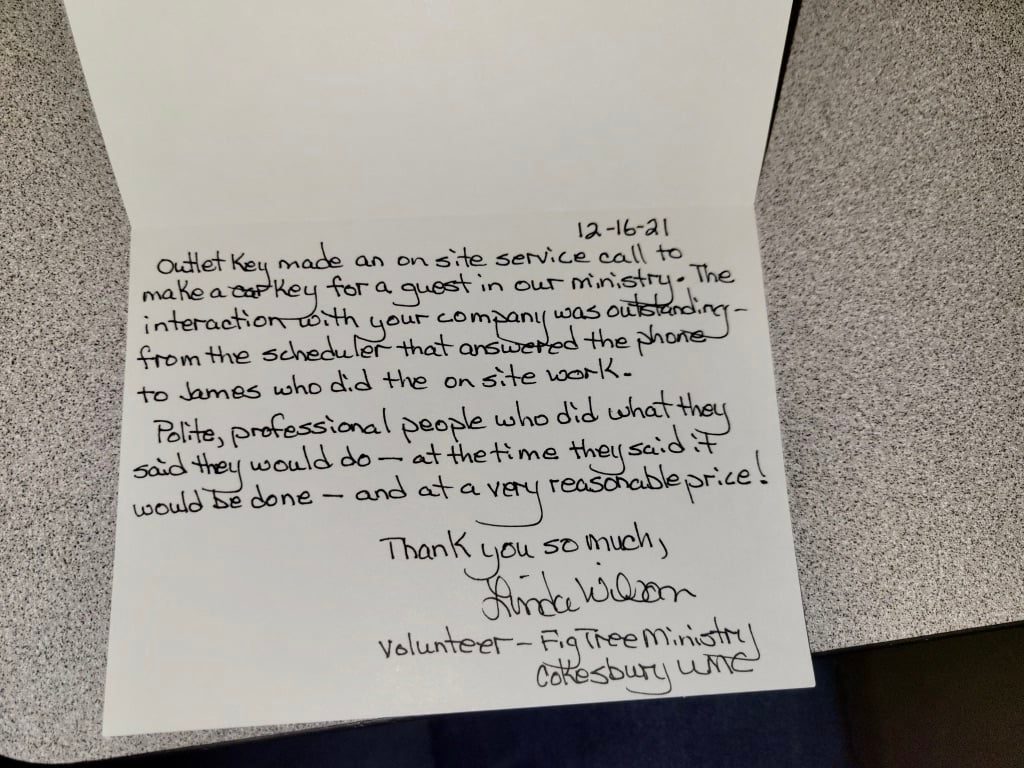 12-16-21
Outlet Key made an on site service call to
make a car key for a guest in our ministry. The
interaction with your company was outstanding -
from the scheduler that answered the phone
to James who did the on site work.
Polite, professional people who did what they
said they would do - at the time they said it
would be done - and at a very reasonable price!
Thank you so much,
Linda Wilson
Volunteer - Fig Tree Ministry
Cokesbury UMC